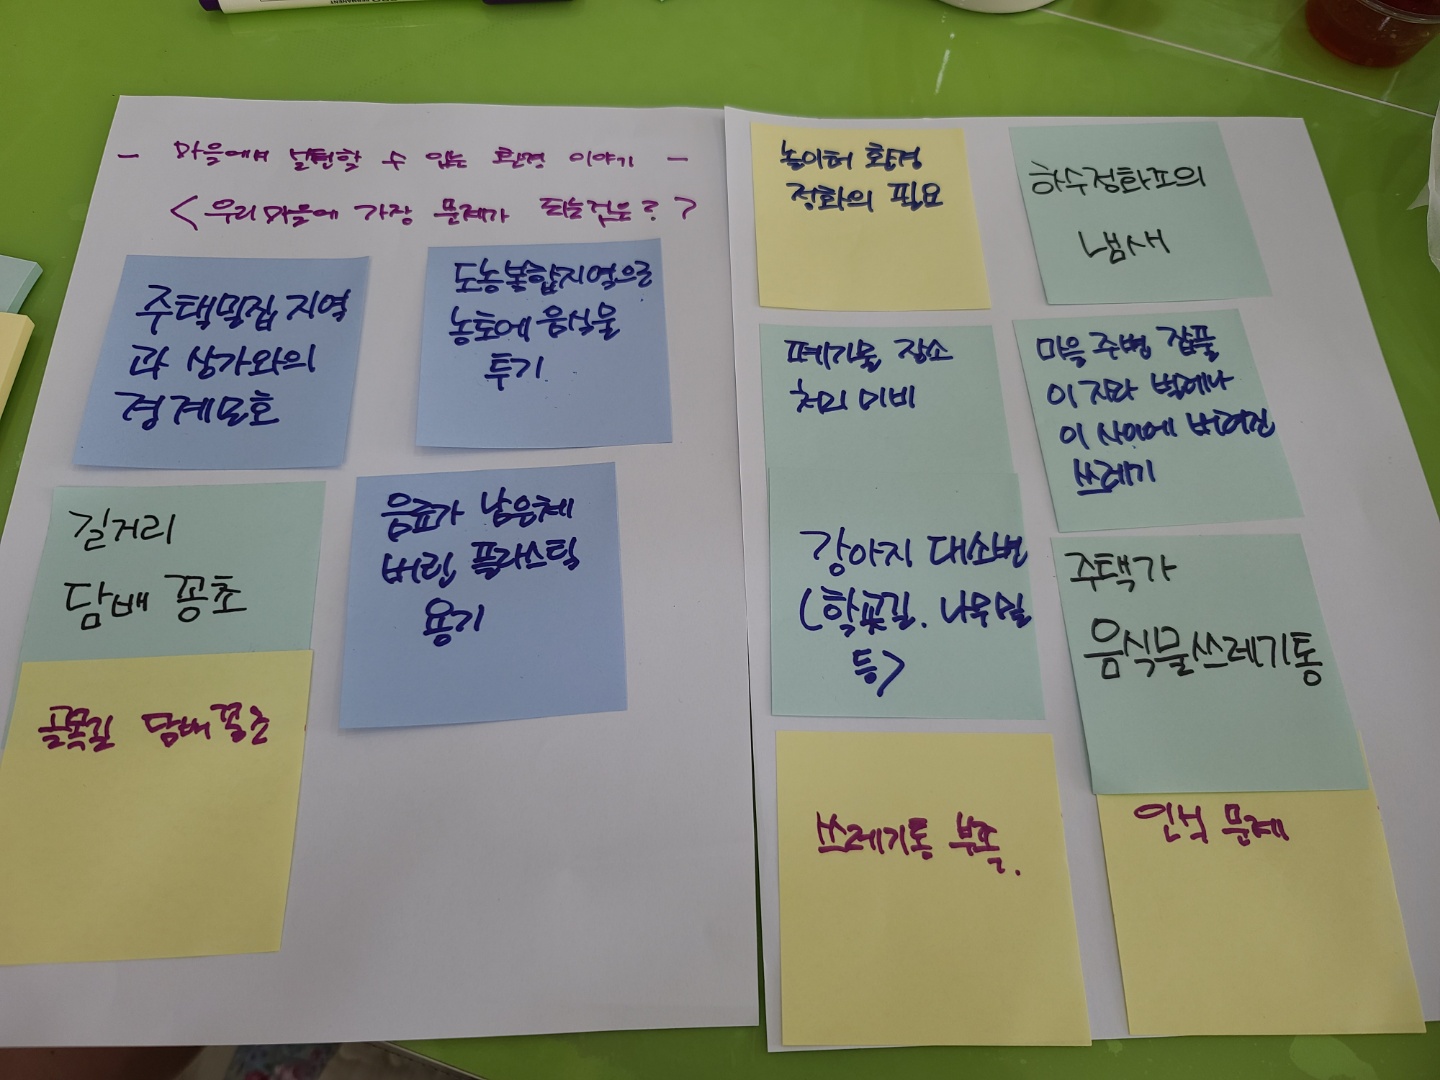 - 마을에서 발견할 수 있는 환경 이야기 -
<우리마을에 가장 문제가 되는것은?>
주택밀집 지역
과 상가와의
경계모호
도농복합지역으로
농토에 음식물
투기
길거리
담배 꽁초
음료가 남은체
버린 플라스틱
용기
골목길 담배꽁초
놀이터 환경
정화의 필요
하수정화조의
냄새
폐기물 장소
처리 미비
마을 주변 잡풀
이 자라 벌레나
이 사이에 버려진
쓰레기
강아지 대소변
(학꽃길. 나무밑
등)
주택가
음식물쓰레기통
쓰레기통 부족.
인식 문제